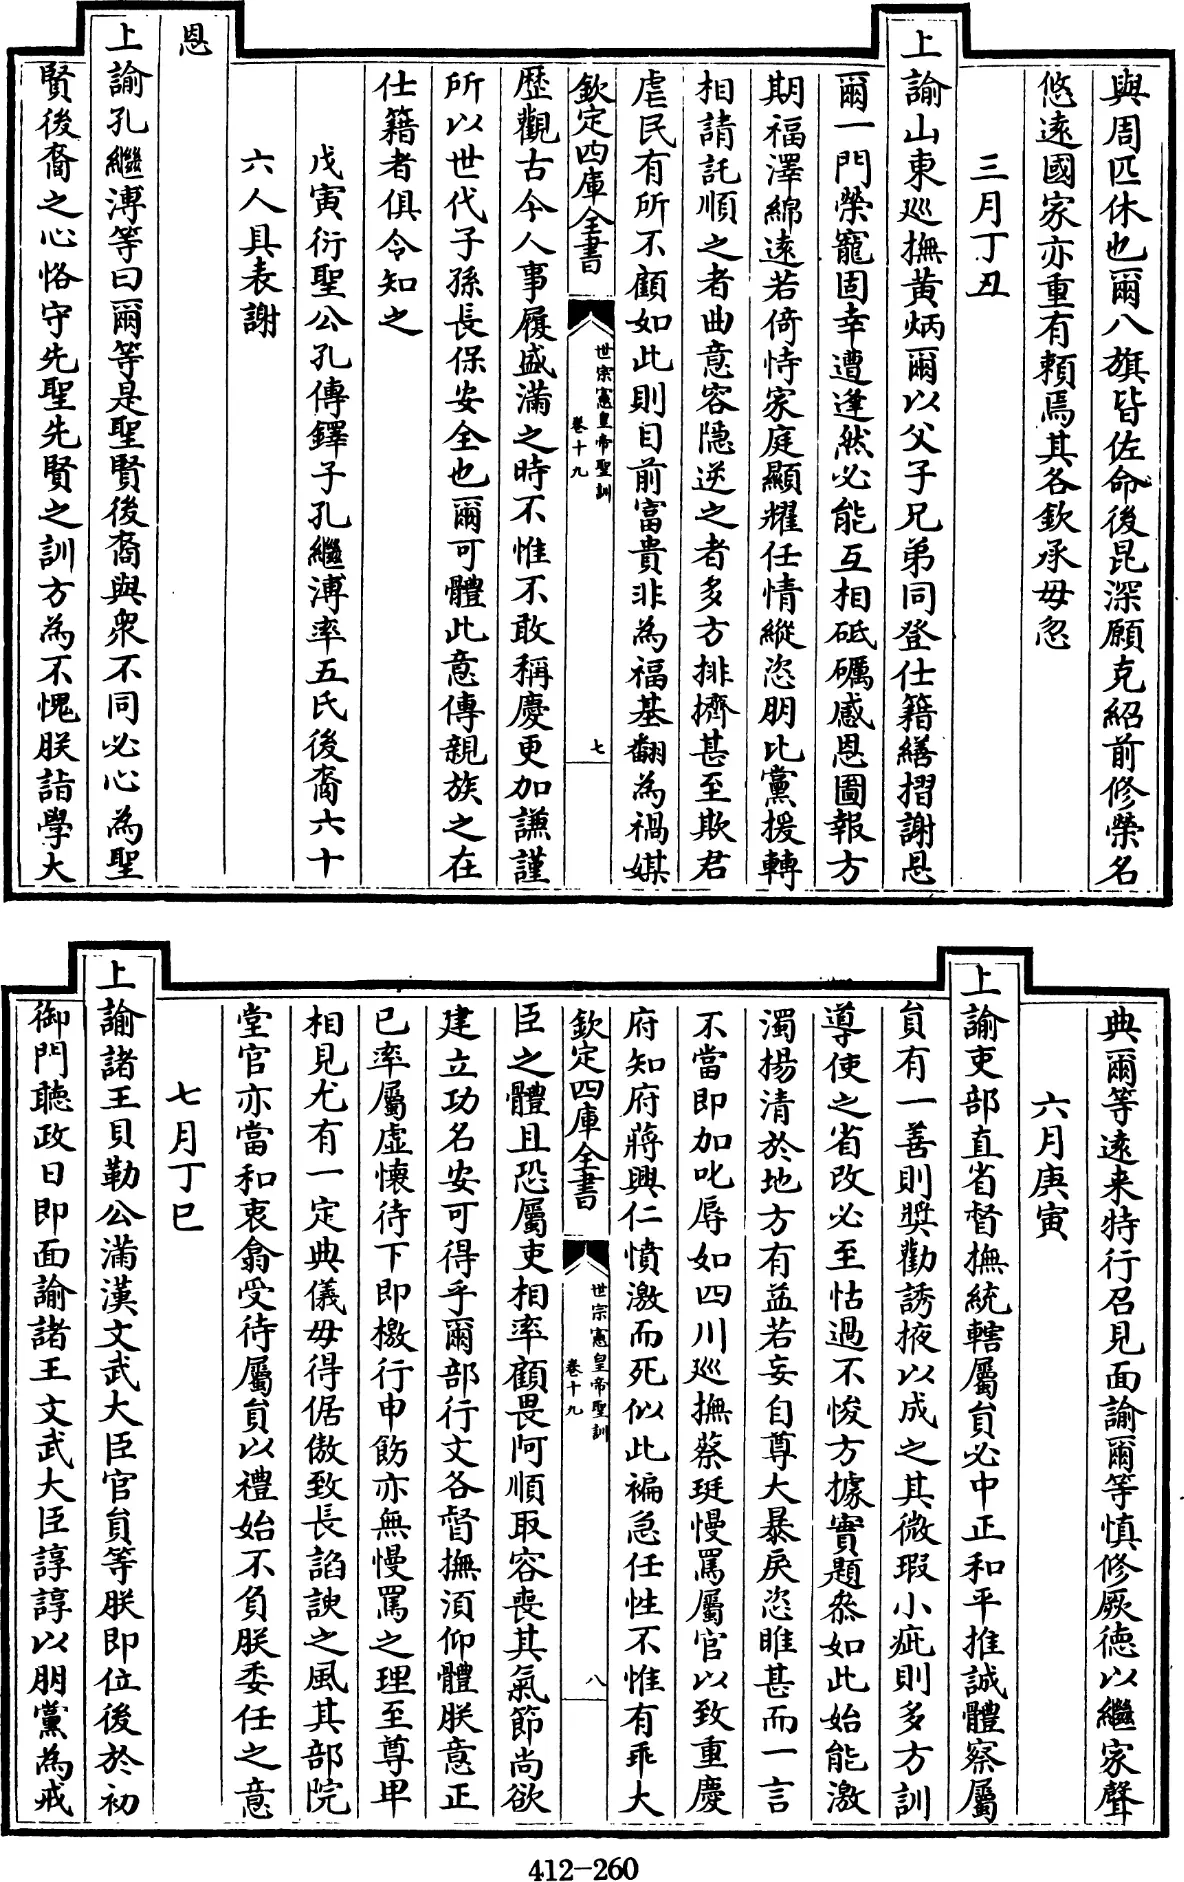 與周匹休也爾八旗皆佐命後昆深願克紹前修榮名
悠遠國家亦重有賴焉其各欽承毋忽
三月丁丑
上諭山東巡撫黃炳爾以父子兄弟同登仕籍繕摺謝恩
爾一門榮寵固幸遭逢然必能互相砥礪感恩圖報方
期福澤綿遠若倚恃家庭顯耀任情縱恣朋比黨援轉
相請託順之者曲意容隱逆之者多方排擠甚至欺君
虐民有所不顧如此則目前富貴非為福基翻為禍媒
欽定四庫全書
世宗憲皇帝聖訓
卷十九
七
歷觀古今人事履盛滿之時不惟不敢稱慶更加謙謹
所以世代子孫長保安全也爾可體此意傳親族之在
仕籍者俱令知之
戊寅衍聖公孔傳鐸子孔繼溥率五氏後裔六十
六人具表謝
恩
上諭孔繼溥等曰爾等是聖賢後裔與衆不同必心為聖
賢後裔之心恪守先聖先賢之訓方為不愧朕詣學大
典爾等遠來特行召見面諭爾等慎修厥德以繼家聲
六月庚寅
上諭吏部直省督撫統轄屬員必中正和平推誠體察屬
員有一善則奬勸誘掖以成之其微瑕小疵則多方訓
導使之省改必至怙過不悛方據實題叅如此始能激
濁揚清於地方有益若妄自尊大暴戾恣睢甚而一言
不當即加叱辱如四川巡撫蔡珽慢罵屬官以致重慶
府知府蔣興仁憤激而死似此褊急任性不惟有乖大
欽定四庫全書
世宗憲皇帝聖訓
卷十九
八
臣之體且恐屬吏相率顧畏阿順取容喪其氣節尚欲
建立功名安可得乎爾部行文各督撫須仰體朕意正
已率屬虛懷待下即檄行申飭亦無慢罵之理至尊卑
相見尤有一定典儀毋得倨傲致長諂諛之風其部院
堂官亦當和衷翕受待屬員以禮始不負朕委任之意
七月丁巳
上諭諸王貝勒公滿漢文武大臣官員等朕即位後於初
御門聽政日即面諭諸王文武大臣諄諄以朋黨為戒
412-260